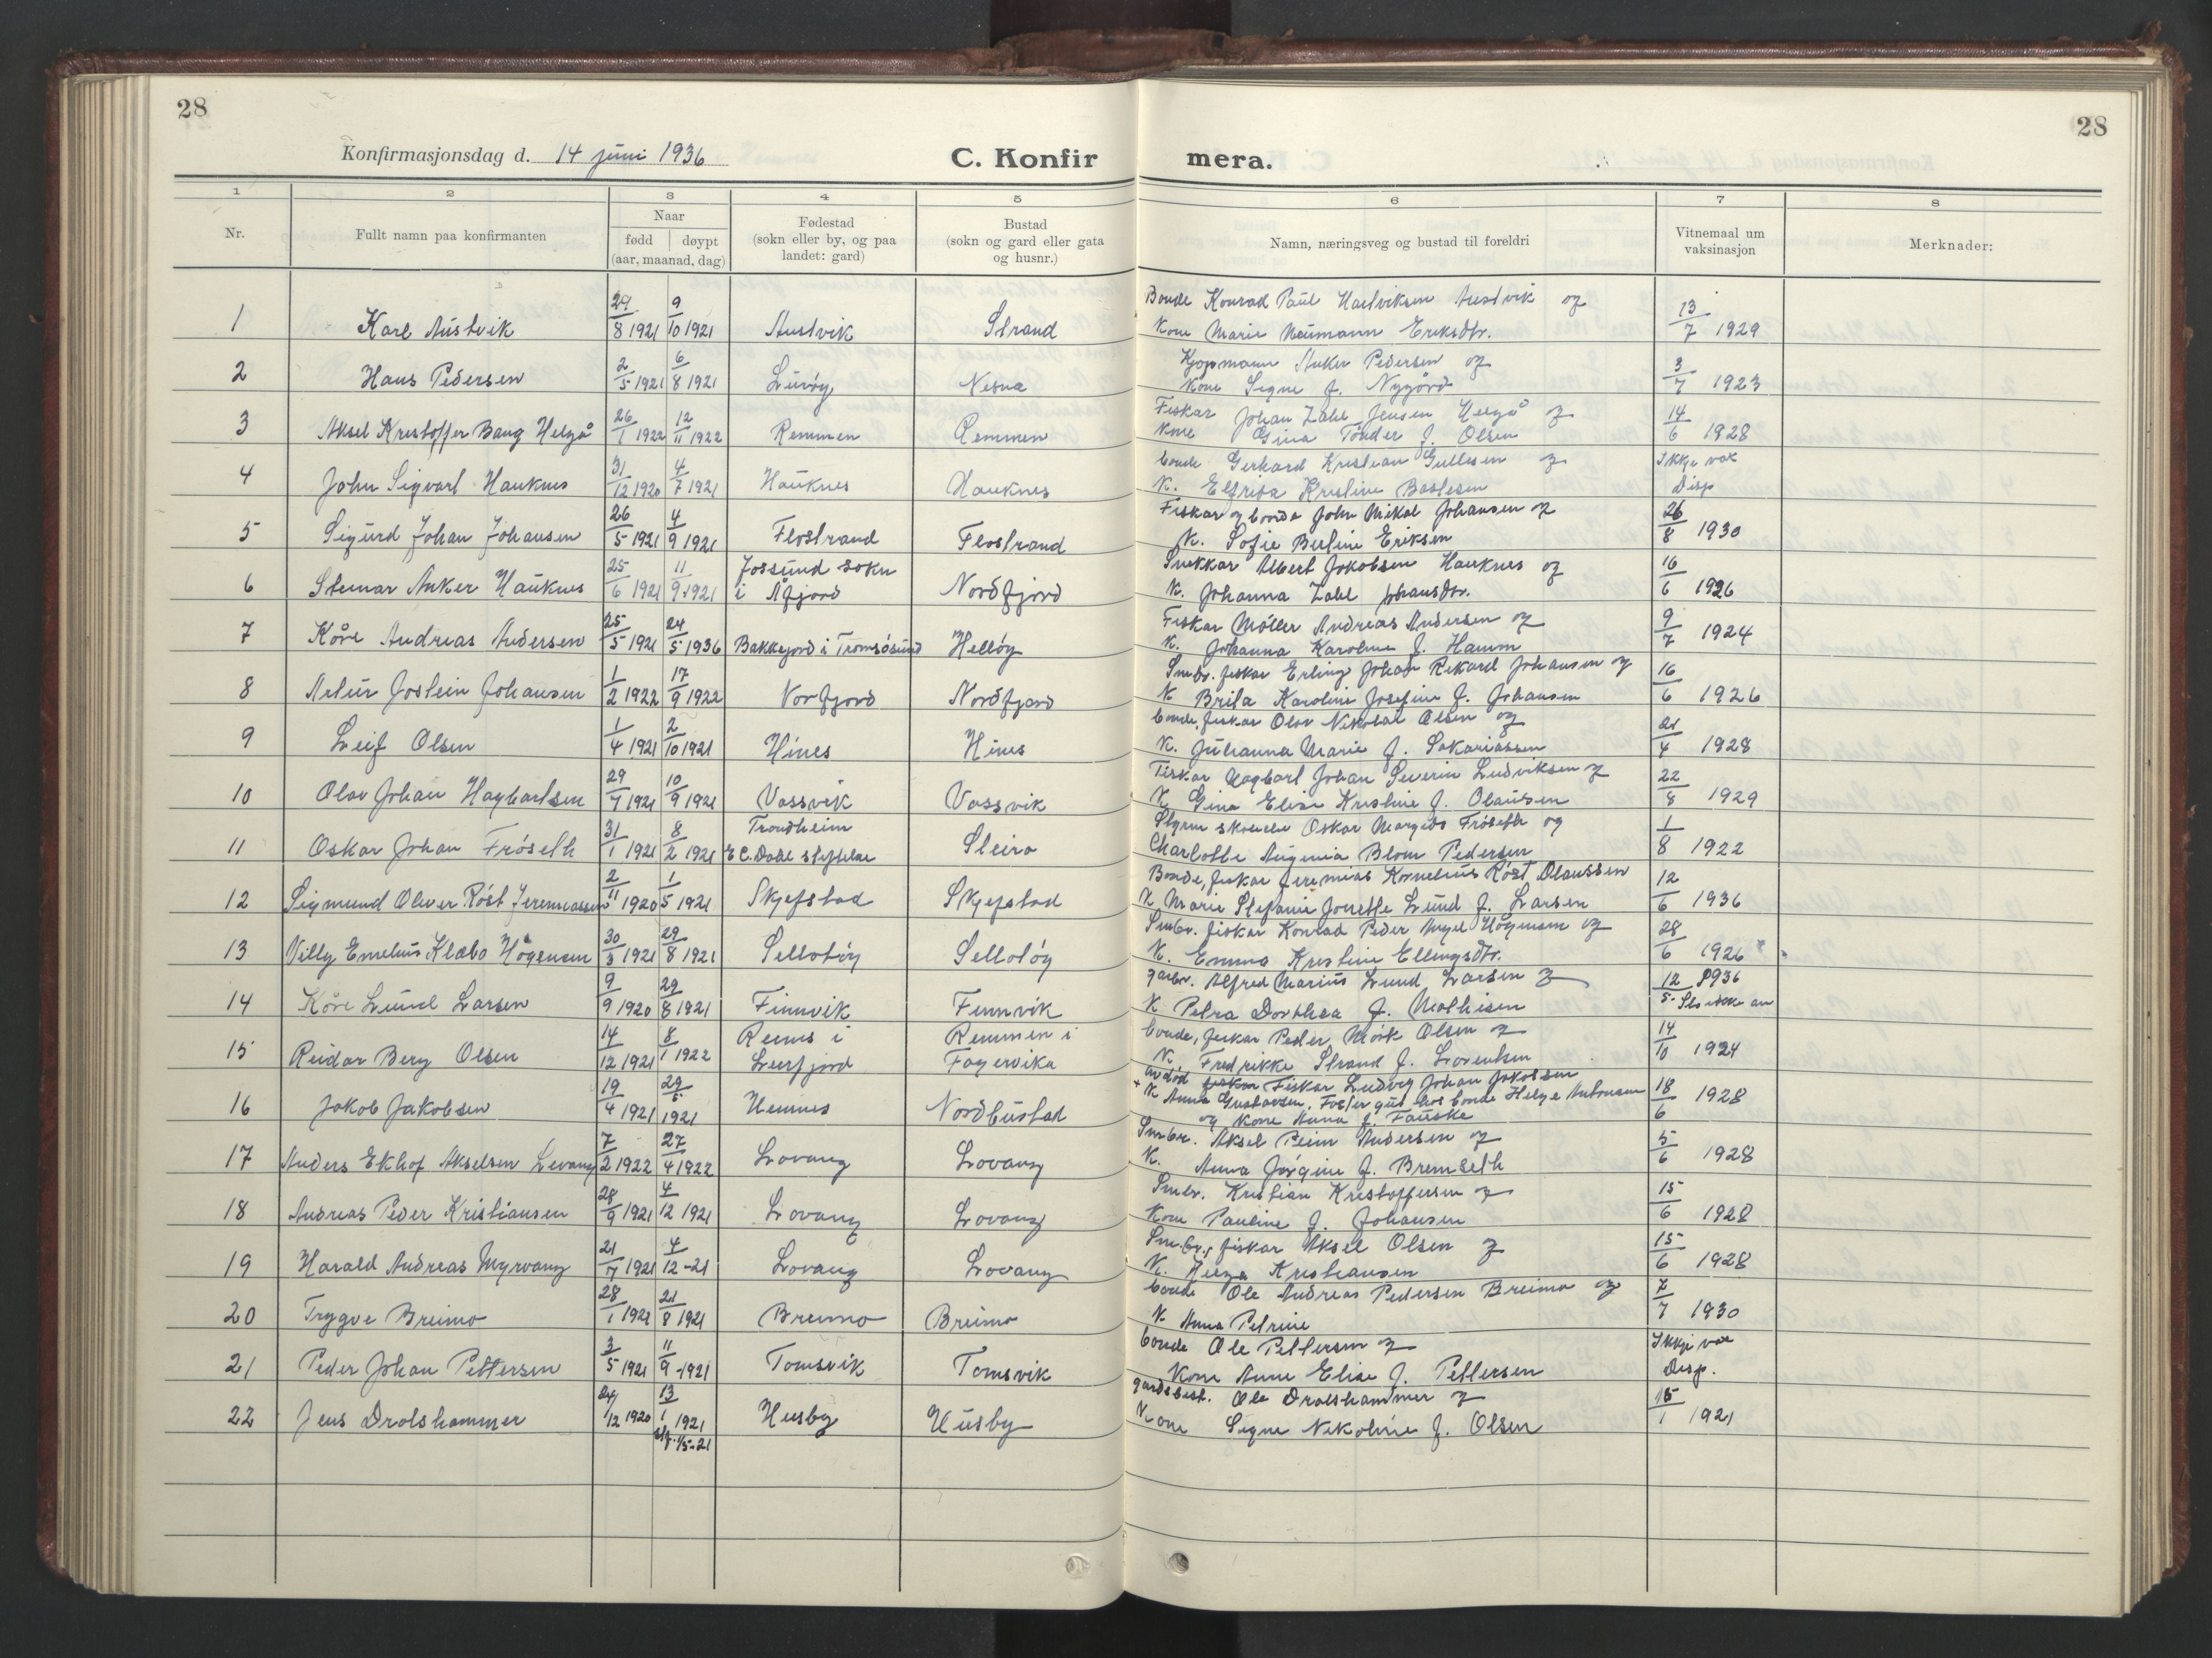 28
28
Konfirmasjonsdag d. 14 juni 1936
C. Konfir mera.
1 2 3 4 5 6 7 8
Nr.
Fullt namn paa konfirmanten
Naar
fødd døypt
(aar, maanad, dag)
Fødestad
(sokn eller by, og paa
landet: gard)
Bustad
(sokn og gard eller gata
og husnr.)
Namn, næringsveg og bustad til foreldri
Vitnemaal um
vaksinasjon
Merknader:
1 Karl Austvik 29/8 1921 9/10 1921 Austvik Strand Bonde Konrad Paul Hartviksen Austvik og
Kone Marie Neumann Eriksdtr. 13/7 1929
2 Hans Pedersen 2/5 1921 6/8 1921 Lurøy Nesna Kjøpmann Anker Pedersen og
Kone Signe f. Nygård 3/7 1923
3 Aksel Kristoffer Bang Helgå 26/1 1922 12/11 1922 Remmen Remmen Fiskar Johan Zahl Jensen Helgå og
Kone Gina Tønder f. Olsen 14/6 1928
4 John Sigvart Hauknes 31/12 1920 4/7 1921 Hauknes Hauknes bonde Gerhard Kristian Gullesen og
K. Elfrida Kristine Bastesen Ikkje vax
Disp
5 Sigurd Johan Johansen 26/5 1921 4/9 1921 Flostrand Flostrand Fiskar og bonde John Mikal Johansen og
K. Sofie Berline Eriksen 26/8 1930
6 Steinar Anker Hauknes 25/6 1921 11/9 1921 Jossund sokn
i Åfjord Nordfjord Snekkar Albert Jakobsen Hauknes og
K. Johanna Zahl Johansdtr. 16/6 1926
7 Kåre Andreas Andersen 25/5 1921 24/5 1936 Bakkejord i Tromsøsund Helløy Fiskar Møller Andreas Andersen og
K. Johanna Karoline f. Hamm 9/7 1924
8 Artur Jostein Johansen 1/2 1922 17/9 1922 Norfjord Nordfjord Smbr. fiskar Erling Johan Rikard Johansen og
K Brita Karoline Josefine f. Johansen 16/6 1926
9 Leif Olsen 1/4 1921 2/10 1921 Hines Hines bonde, fiskar Olav Nikolai Olsen og
K. Julianna Marie f. Sakariassen 21/4 1928
10 Olav Johan Hagbartsen 29/7 1921 10/9 1921 Vassvik Vassvik Fiskar Hagbart Johan Severin Ludviksen og
K Gina Elise Kristine f. Olausen 22/8 1929
11 Oskar Johan Frøseth 31/1 1921 8/2 1921 Trondheim
E C. Dahl stiftelse Sleira Oskar Margido Frøseth og
Charlotte Augenia Blom Pedersen 1/8 1922
12 Sigmund Oliver Røst Jeremiassen 2/11 1920 1/5 1921 Skjefstad Skjefstad Bonde, fiskar Jeremias Kornelius Røst Olaussen
K Marie Stefanie Jonette Lund f. Larsen 12/6 1936
13 Villy Emelius Klæbo Högensen 30/3 1921 29/8 1921 Selløtøy Selløtøy Smbr. fiskar Konrad Peder Myel Högensen og
K. Emma Kristine Ellingsdtr. 28/6 1926
14 Kåre Lund Larsen 9/9 1920 29/8 1921 Finnvik Finnvik garbr. Alfred Marius Lund Larsen og
K Petra Dorthea f. Mathisen 12/5 1936
Slo ikke an
15 Reidar Berg Olsen 14/12 1921 8/1 1922 Remns i
Leirfjord Remmen i
Fagervika bonde, fiskar Peder Mörk Olsen og
K Fredrikke Strand f. Lorentsen 14/10 1924
16 Jakob Jakobsen 19/4 1921 29/5 1921 Hemnes Nordbustad avdöd Fiskar Ludvig Johan Jakobsen
+ K Anna Gustavsen, Fostergut hos bonde Helge Antonsen
og Kone Anna f. Fauske 18/6 1928
17 Anders Ekhof Akselsen Levang 7/2 1922 27/4 1922 Lovang Lovang Smbr. Aksel Pleim Andersen og
K. Anna Jørgine f. Bremseth 5/6 1928
18 Andreas Peder Kristiansen 28/9 1921 4/12 1921 Lovang Lovang Smbr. Kristian Kristoffersen og
Kone Pauline f. Johansen 15/6 1928
19 Harald Andreas Myrvang 21/7 1921 4/12-21 Lovang Lovang Smbr, fiskar Aksel Olsen og
K. Helga Kristiansen 15/6 1928
20 Trygve Breimo 28/1 1921 21/8 1921 Breimo Breimo bonde Ole Andreas Pedersen Breimo og
K Anna Petrine 7/7 1930
21 Peder Johan Pettersen 3/5 1921 11/9-1921 Tomsvik Tomsvik bonde Ole Pettersen og
Kone Anne Elise f. Pettersen Ikkje vax
Disp.
22 Jens Drolshammer 24/12 1920 13/1 1921
1/5-21 Husby Husby gardsbest. Ole Drolshammer og
Kone Signe Nikoline f. Olsen 15/1 1921